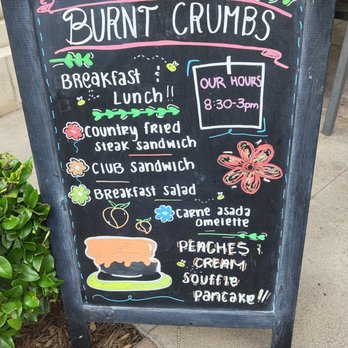 BURNT CRUMBS
BREAKFAST
LUNCH!!
OUR HOURS
8:30-3pm
COUNTRY FRIED
STEAK SANDWICH
CLUB SANDWICH
BREAKFAST SALAD
CARNE ASADA
OMELETTE
PEACHES &
CREAM
SOUFFLE
PANCAKE!!